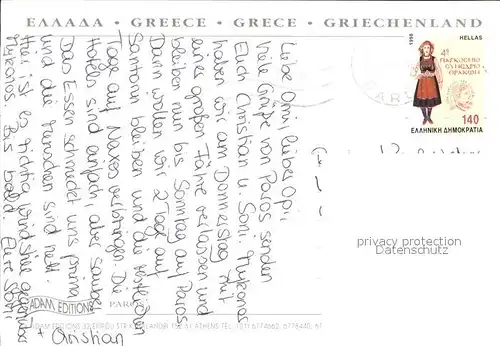 ΕΛΛΑΔΑ · GREECE · GRECE · GRIECHENLAND
Liebe Omi, lieber Opi,
viele Grüße von Paros senden
Euch Christian u. Soni. Mykonos
haben wir am Donnerstag mit
einer großen Fähre verlassen und
bleiben nun bis Sonntag auf Paros
Dann wollen wir 2 Tage auf
Santorin bleiben und die restlichen
Tage auf Naxos verbringen. Die
Hotels sind einfach, aber sauber
Das Essen schmeckt uns prima
und die Menschen sind nett.
Hier ist es richtig windstill gegenüber
Mykonos. Bis bald! Eure
+ Christian
1996
HELLAS
4º
ΠΑΓΚΟΣΜΙΟ
ΣΥΝΕΔΡΙΟ
ΘΡΑΚΩΝ
140
ΕΛΛΗΝΙΚΗ ΔΗΜΟΚΡΑΤΙΑ
privacy protection
Datenschutz
ADAM EDITIONS
PAROS
ADAM EDITIONS
ATHENS TEL.